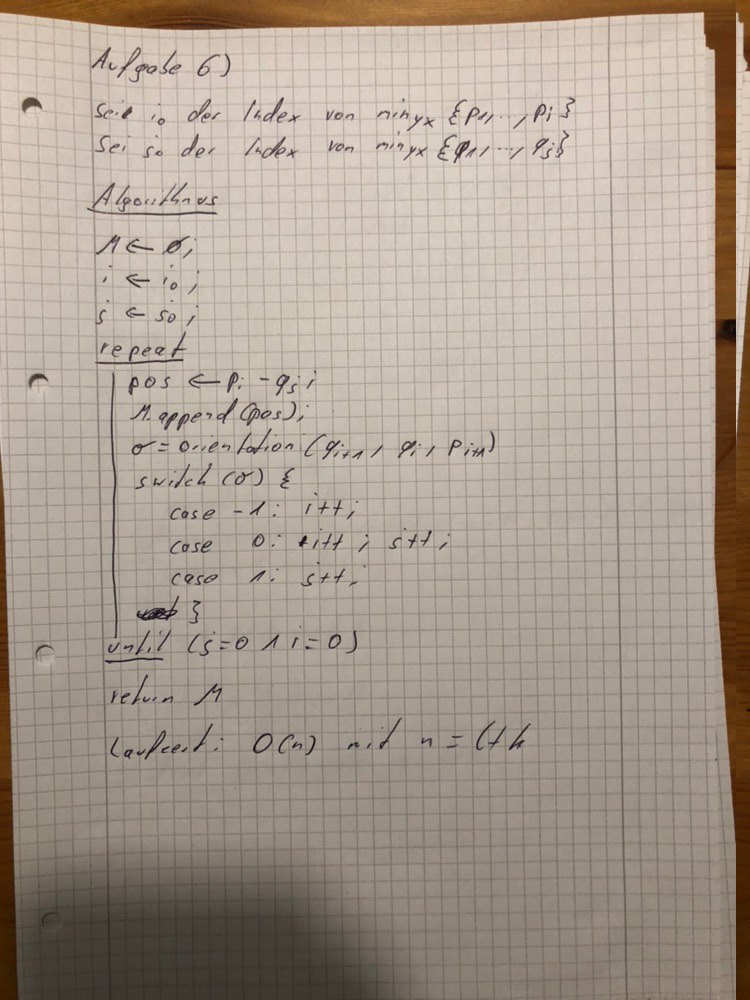 Aufgabe 6)
Sei i₀ der Index von min_yx {p1, ..., pi}
Sei j₀ der Index von min_yx {q1, ..., qj}
Algorithmus
M ← ∅;
i ← i₀;
j ← j₀;
repeat
pos ← pi - qj;
M.append(pos);
σ = orientation (qi+1, qi, pi+1)
switch (σ) {
case -1: i++;
case 0: i++; j++;
case 1: j++;
}
until (j=0 ∧ i=0)
return M
Laufzeit: O(n) mit n = l+k